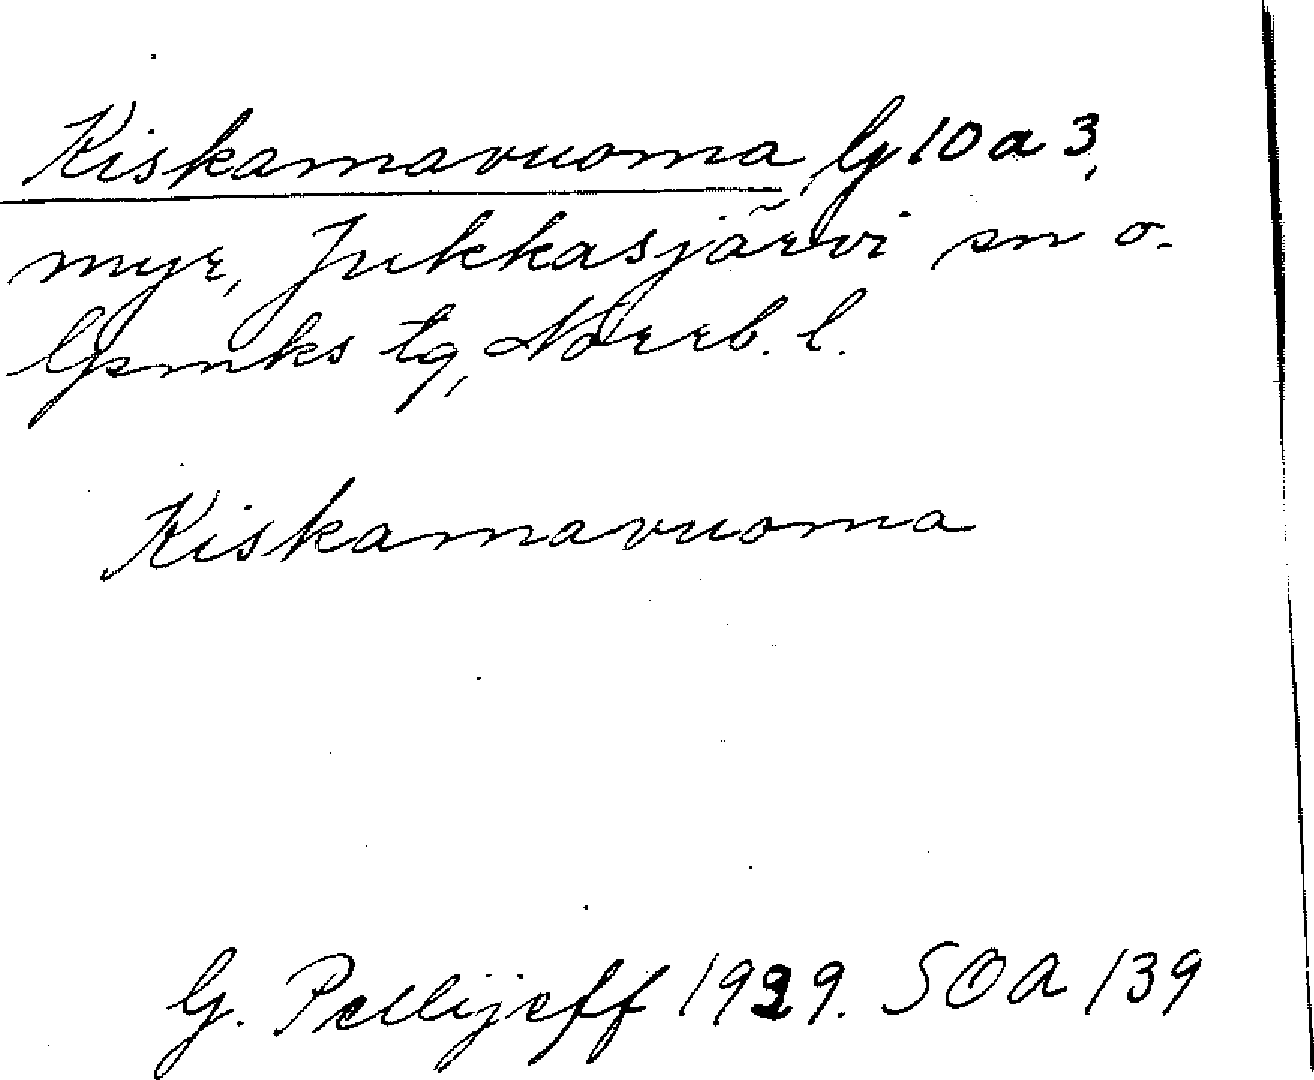 Kiskamavuoma, G 10 a 3,
myr, Jukkasjärvi sn o.
Gmks tg, Norrb. l.
Kiskamavuoma
G. Pellijeff 1929. SOA 139